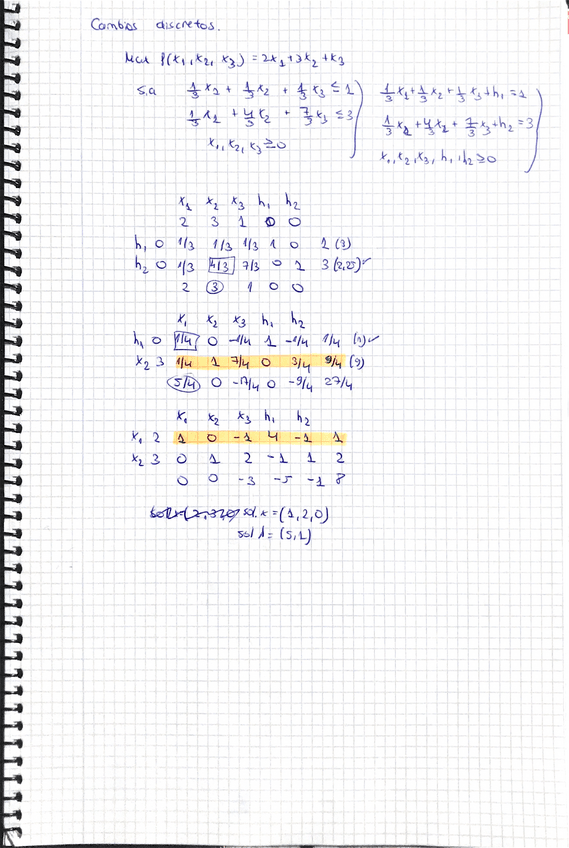 Cambios discretos.
Max f(x₁, x₂, x₃) = 2x₁+3x₂+x₃
s.a 1/3 x₁ + 1/3 x₂ + 1/3 x₃ ≤ 1
1/3 x₁ + 4/3 x₂ + 7/3 x₃ ≤ 3
x₁, x₂, x₃ ≥ 0
1/3 x₁ + 1/3 x₂ + 1/3 x₃ + h₁ = 1
1/3 x₁ + 4/3 x₂ + 7/3 x₃ + h₂ = 3
x₁, x₂, x₃, h₁, h₂ ≥ 0
x₁ x₂ x₃ h₁ h₂
2 3 1 0 0
h₁ 0 1/3 1/3 1/3 1 0 1 (3)
h₂ 0 1/3 4/3 7/3 0 1 3 (2,25) ✓
2 3 1 0 0
x₁ x₂ x₃ h₁ h₂
h₁ 0 1/4 0 -1/4 1 -1/4 1/4 (1) ✓
x₂ 3 1/4 1 7/4 0 3/4 9/4 (9)
5/4 0 -17/4 0 -9/4 27/4
x₁ x₂ x₃ h₁ h₂
x₁ 2 1 0 -1 4 -1 1
x₂ 3 0 1 2 -1 1 2
0 0 -3 -5 -1 8
sol. x = (1, 2, 0)
sol λ = (5, 1)